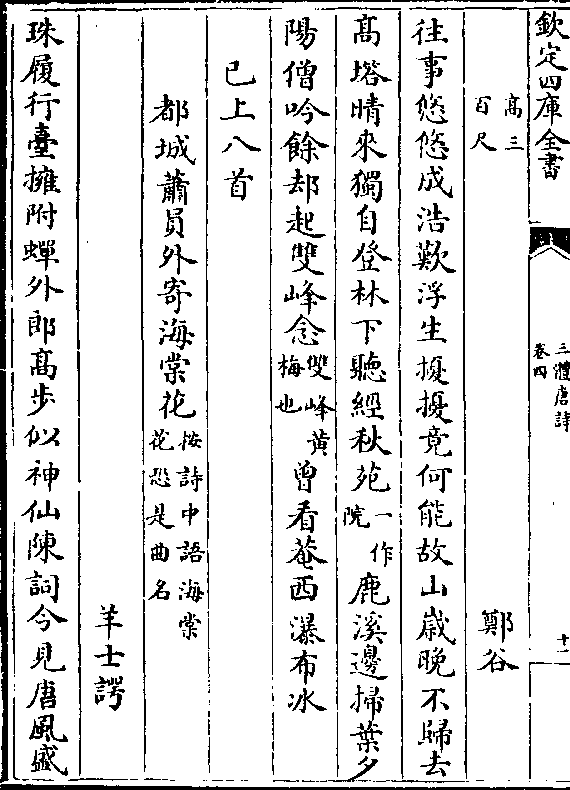 欽定四庫全書
三體唐詩
卷四
十二
高三
百尺
鄭谷
往事悠悠成浩歎浮生擾擾竟何能故山歲晚不歸去
高塔晴來獨自登林下聽經秋苑一作院鹿溪邊掃葉夕
陽僧吟餘却起雙峰念雙峰黄梅也曾看菴西瀑布冰
已上八首
都城蕭員外寄海棠花按詩中語海棠花恐是曲名
羊士諤
珠履行臺擁附蟬外郎高步似神仙陳詞今見唐風盛